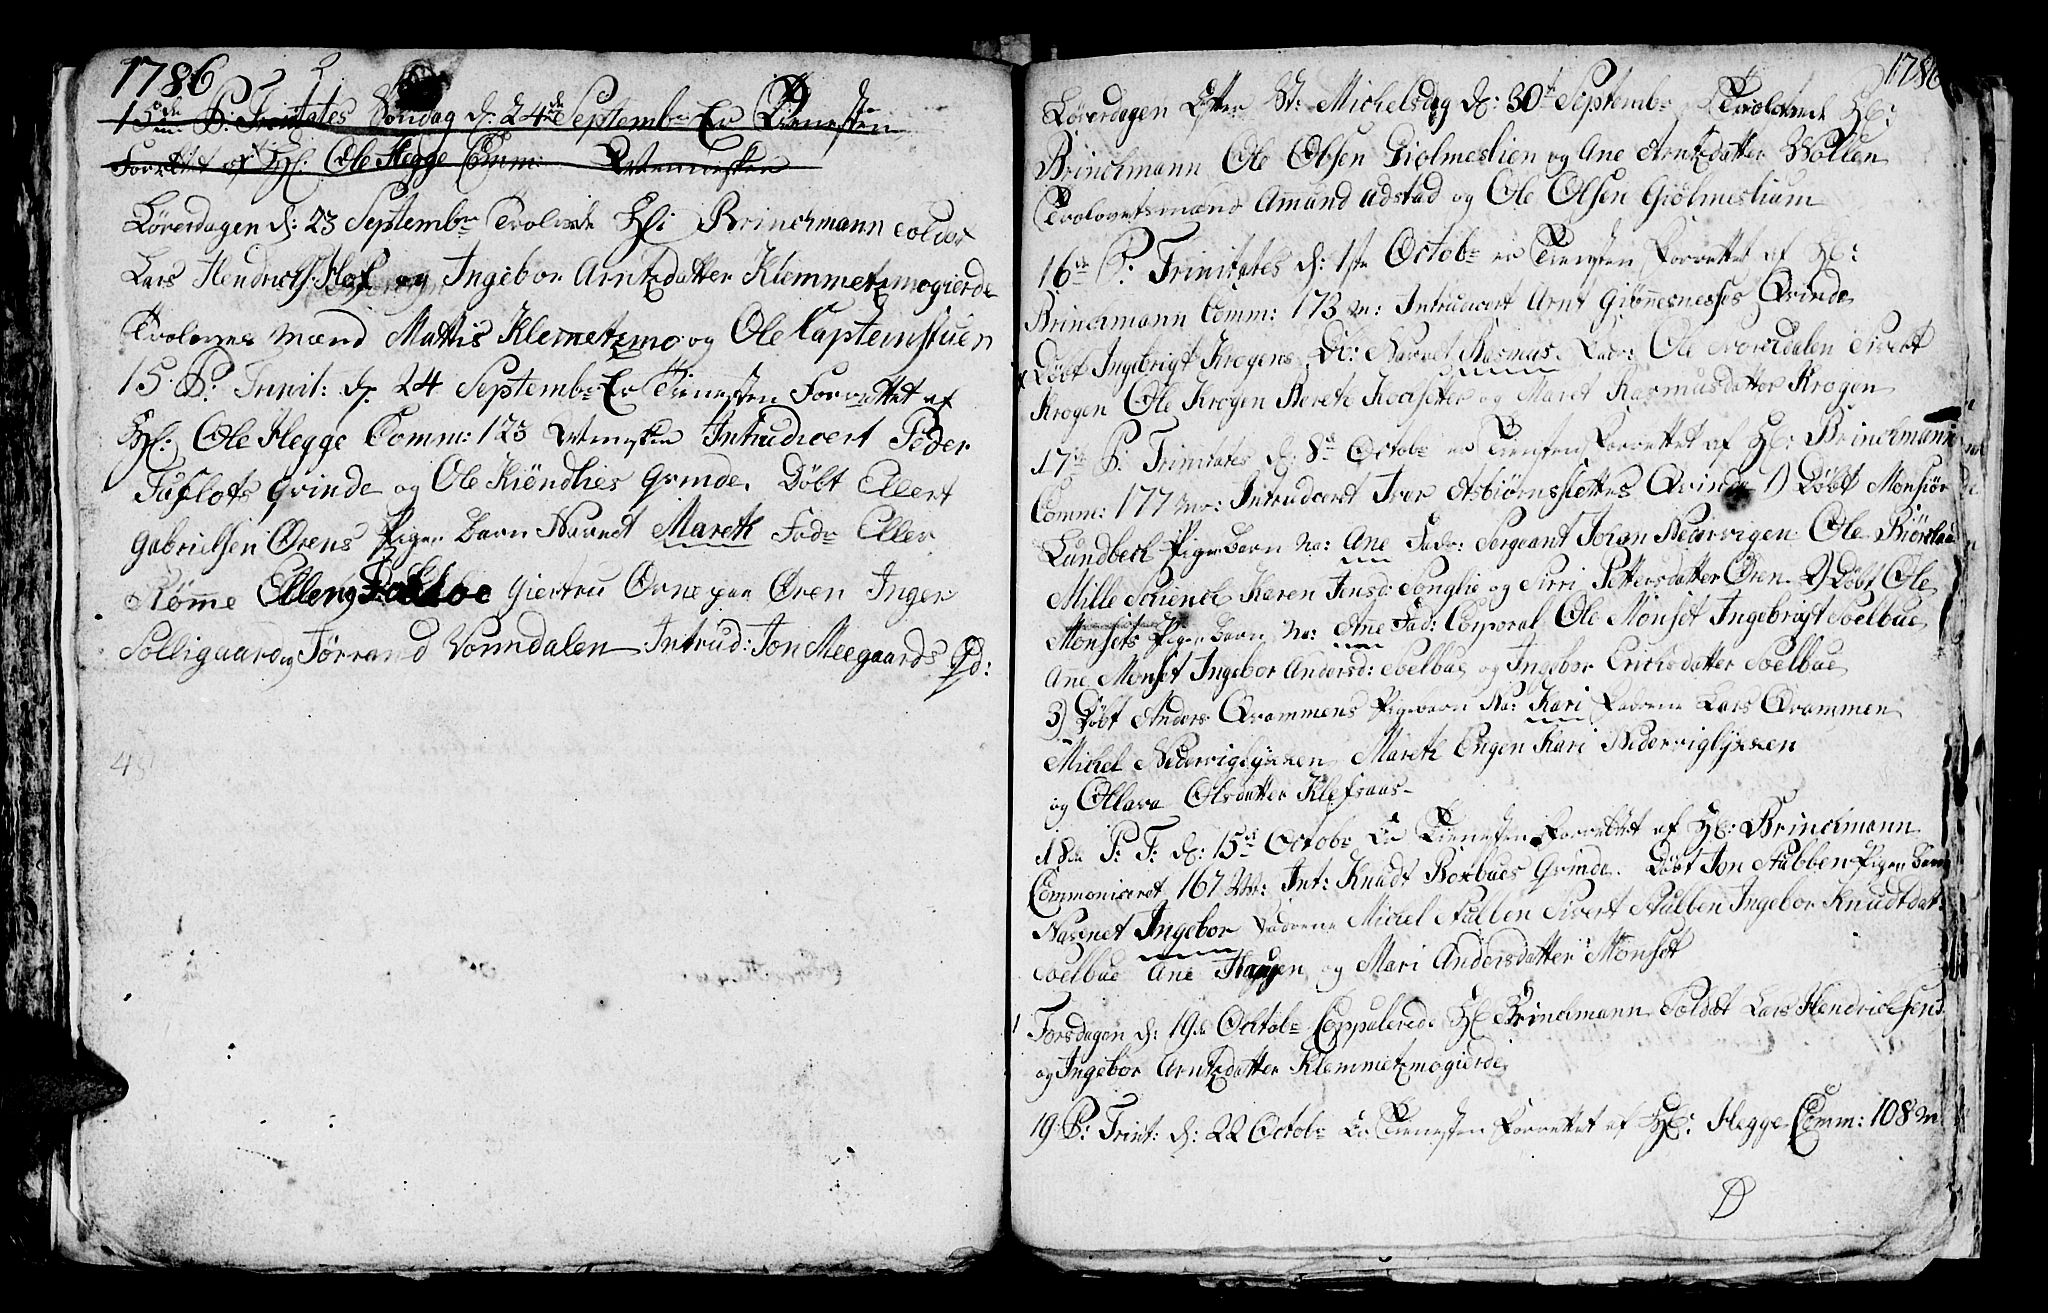 1786
15de P: Trinitates Søndag d: 24de Septembr Er Tienesten
Forrettet af Hl: Ole Hegge Comm: Mennisker
Løverdagen d: 23 Septembr Trolovede Hl: Brinchmann Soldat
Lars Hendrichs: Hof og Ingebor Arntzdatter Klemmetzmogierde
Trolovnes mænd Mattis Klemetzmo og Ole Capteinstuen
15 P: Trinit: d. 24 Septembr Er Tienesten Forrettet af
Hl: Ole Hegge Comm: 123 Mennisker Introduceert Peder
Flots Qvinde og Ole Kiöndlies Qvinde. Døbt Ellert
Gabrielsen Ørens Pigen barn Navnet Mareth Fadr Eller
Rømme Giertru Orne paa Øren Inger
Solligaard og Tørrand Vonndalen Introd: Jon Meegaards Qd:
48
1786
Løverdagen Efter St: Michelsdag d: 30te Septembr Trolovede Hl:
Brinchmann Ole Olsen Giolmeslien og Ane Arntzdatter Wollen
Trolovetsmænd Amund Udstad og Ole Olsen Giölmeslium
16de P: Trinitates d: 1ste Octobr er Tienesten Forrettet af Hl:
Brinchmann Comm: 173 M: Introduceert Arnt Giönnesnesses Qvinde
Døbt Ingebrigt Krogens Db: Navnet Rasmus Fadr: Ole Sivert
Krogen Ole Krogen Bereth og Maret Rasmusdatter Krogen
17de P: Trinitates d: 8de Octobr er Tienesten Forrettet af Hl: Brinchmann
Comm: 177 M: Introduceert Iver Asbiörnsslettes Qvinde 1) Døbt Monsiör
Lundbech Pigen barn Na: Ane Fadr: Sergeant Johan Nedervigen Ole
Mille Schiench Karen Jensd: Songlie og Sirri Pettersdatter Øren 2) Døbt Ole
Monsets Pigen barn Na: Ane Fad: Corporal Ole Monset Ingebrigt Soelbue
Ane Monset Ingebor Andersd: Soelbue og Ingebor Erichsdatter Soelbue
3) Døbt Anders Qvammens Pigebarn Na: Kari Faderne Lars Qvammen
Michel Nedervigløkken Mareth Engen Kari Nedervigløkken
og Ollava Olsdatter Klefsaas
18de P: T: d: 15de Octobr Er Tienesten Forrettet af Hl: Brinchmann
Commoniceret 167 M: Int: Knudt Roxbues Qvinde. Døbt Jon Stubben Pigen barn
Navnet Ingebor Fadderne Michel Stubben Sivert Stubben Ingebor Knudtdat:
Soelbue Ane Haugen og Mari Andersdatter Monset
Torsdagen d: 19de Octobr Coppulerede Hl Brinchmann Soldat Lars Hendrichsens
og Ingebor Arntzdatter Klemmetzmogierde
19 P: Trint: d: 22 Octobr Er Tienesten Forrettet af Hl: Hegge Comm: 108 M